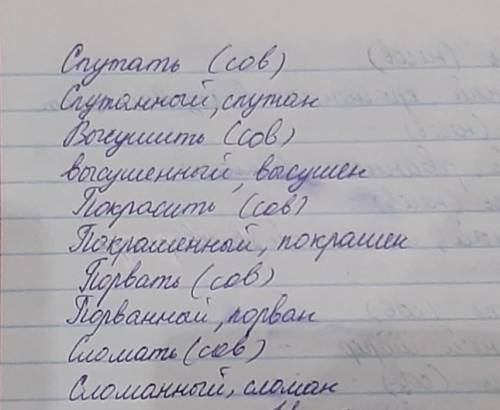 Спутать (сов)
Спутанный, спутан
Высушить (сов)
высушенный, высушен
Покрасить (сов)
Покрашенный, покрашен
Порвать (сов)
Порванный, порван
Сломать (сов)
Сломанный, сломан